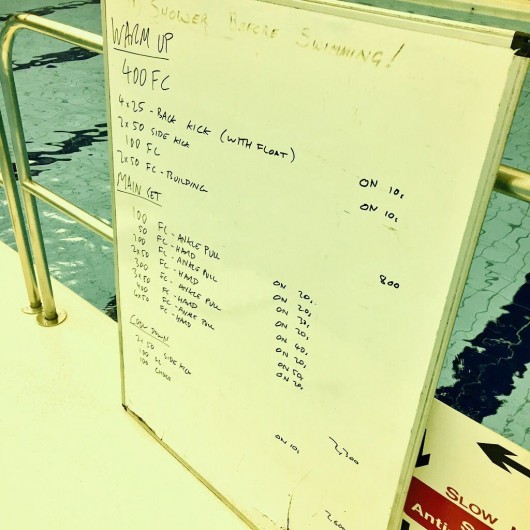 SHOWER BEFORE SWIMMING!
WARM UP
400 FC
4x25 - BACK KICK (WITH FLOAT) ON 10s
2x50 SIDE KICK ON 10s
100 FC
2x50 FC - BUILDING 800
MAIN SET
100 FC - ANKLE PULL ON 20s
50 FC - HARD ON 20s
200 FC - ANKLE PULL ON 30s
2x50 FC - HARD ON 20s
300 FC - ANKLE PULL ON 40s
3x50 FC - HARD ON 20s
400 FC - ANKLE PULL ON 50s
4x50 FC - HARD ON 20s 2,300
COOL DOWN
2x50 SIDE KICK ON 10s
100 FC
100 CHOICE 2,600
SLOW
Anti